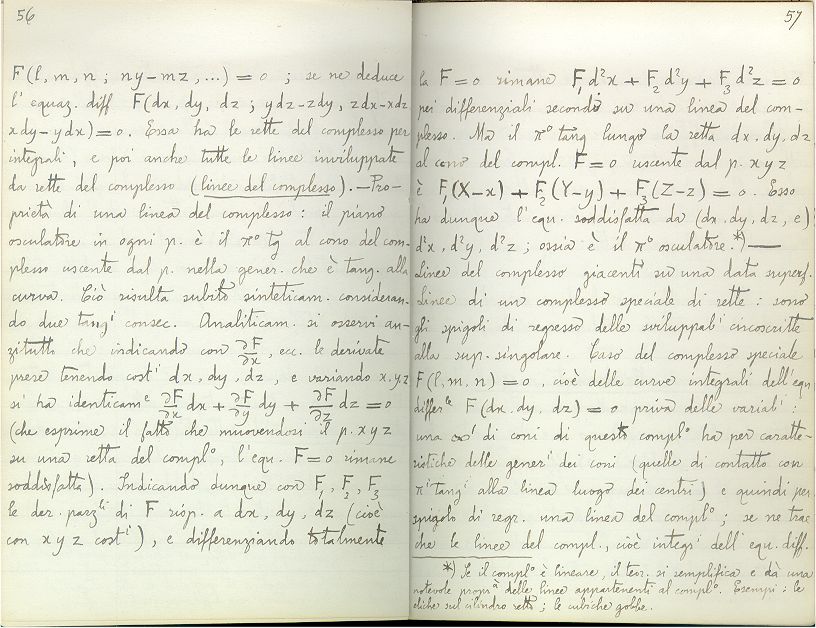 56
F(l, m, n ; ny–mz, ...) = 0 ; se ne deduce
l'equaz. diff F(dx, dy, dz ; ydz–zdy, zdx–xdz,
xdy–ydx)=0. Essa ha le rette del complesso per
integrali, e poi anche tutte le linee inviluppate
da rette del complesso (linee del complesso). — Pro-
prietà di una linea del complesso : il piano
osculatore in ogni p. è il π° tg al cono del com-
plesso uscente dal p. nella gener. che è tang. alla
curva. Ciò risulta subito sinteticam. consideran-
do due tangⁱ consec. Analiticam. si osservi an-
zitutto che indicando con ∂F/∂x, ecc. le derivate
prese tenendo costⁱ dx, dy, dz, e variando x,y,z
si ha identicamᵉ ∂F/∂x dx + ∂F/∂y dy + ∂F/∂z dz = 0
(che esprime il fatto che muovendosi il p. x y z
su una retta del complº, l'equ. F=0 rimane
soddisfatta). Indicando dunque con F₁, F₂, F₃
le der. parzˡⁱ di F risp. a dx, dy, dz (cioè
con x y z costⁱ), e differenziando totalmente
57
la F=0 rimane F₁d²x + F₂d²y + F₃d²z = 0
pei differenziali secondi su una linea del com-
plesso. Ma il π° tang lungo la retta dx, dy, dz
al cono del compl. F=0 uscente dal p. x y z
è F₁(X–x) + F₂(Y–y) + F₃(Z–z) = 0. Esso
ha dunque l'equ. soddisfatta da (dx, dy, dz, e)
d²x, d²y, d²z ; ossia è il π° osculatore.*) —
Linee del complesso giacenti su una data superf.
Linee di un complesso speciale di rette : sono
gli spigoli di regresso delle sviluppabⁱ circoscritte
alla sup. singolare. Caso del complesso speciale
F(l, m, n) = 0, cioè delle curve integrali dell'equ
differˡᵉ F(dx, dy, dz) = 0 priva delle variabⁱ :
una ∞ⁱ di coni di questo complº ha per caratte-
ristiche delle generⁱ dei coni (quelle di contatto con
πⁱ tangⁱ alla linea luogo dei centri) e quindi per
spigolo di regr. una linea del complº ; se ne trae
che le linee del compl., cioè integⁱ dell'equ. diff.
*) Se il complº è lineare, il teor. si semplifica e dà una
notevole propᵃ delle linee appartenenti al complº. Esempi : le
eliche sul cilindro retto ; le cubiche gobbe.